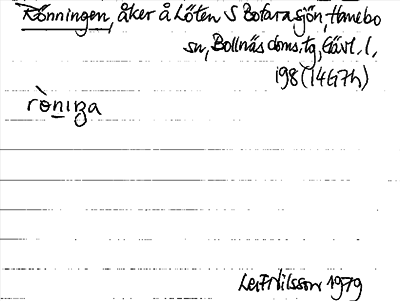 Rönningen, åker å Löten S Bofarasjön, Hanebo
sn, Bollnäs doms.tg, Gävl. l,
198 (14G7h)
ròniŋa
Leif Nilsson 1979